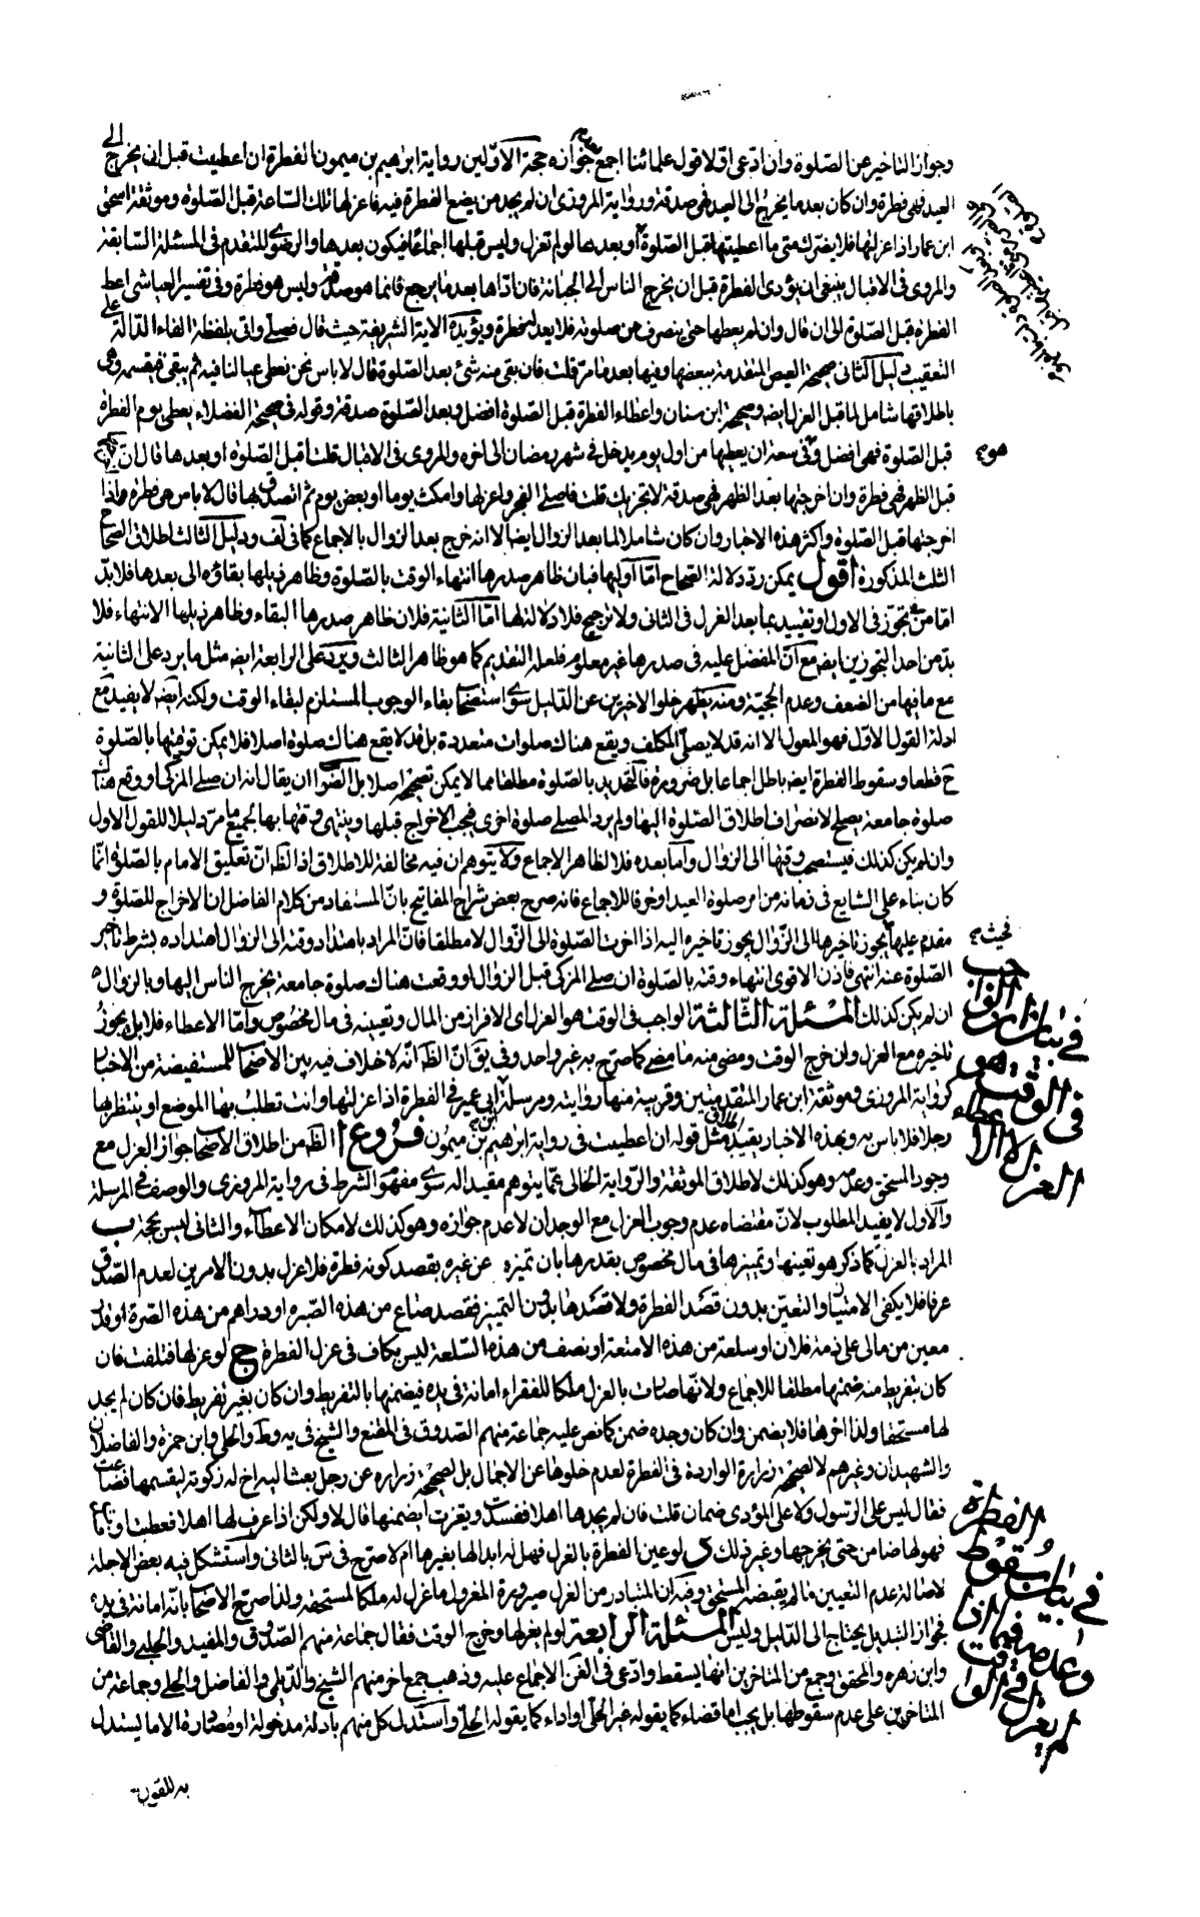 وجواز التاخير عن الصّلوة وان ادّعى اوّلا قول علمائنا اجمع جوازه حجة الاوّلين رواية ابراهيم بن ميمون الفطرة ان اعطيت قبل ان يخرج الى
العيد فهى فطرة وان كان بعد ما يخرج الى العيد فهى صدقة ورواية المروزى ان لم يجد من يضع الفطرة فيه فاعزلها تلك السّاعة قبل الصّلوة وموثقة اسحق
ابن عمار اذا عزلتها فلا يضرّك متى ما اعطيتها قبل الصّلوة او بعدها ولو لم تعزل وليس قبلها اجماعًا فيكون بعدها والرضوى المتقدم فى المسئلة السّابقة
والمروى فى الاقبال ينبغى ان يؤدى الفطرة قبل ان يخرج الناس الى الجبانة فان ادّاها بعد ما يرجع فانما هو صدقة وليس هو فطرة وفى تفسير العياشى اعط
الفطرة قبل الصّلوة الى ان قال وان لم يعطها حتى ينصرف من صلوته فلا يعد له فطرة ويؤيده الاية الشريفة حيث قال فصلّى واتى بلفظة الفاء الدّالة على
التعقيب دليل الثانى صحيحة العيص المتقدمة ببعضها وفيها بعد ما مرّ قلت فان بقى منه شئ بعد الصّلوة قال لا باس نحن نعطى عيالنا فيه ثم يبقى فيقسمه وهى
باطلاقها شامل لما قبل العزل ايضا وصحيحة ابن سنان واعطاء الفطرة قبل الصّلوة افضل وبعد الصّلوة صدقة وقوله فى صحيحة الفضلاء يعطى يوم الفطرة
قبل الصّلوة فهو افضل وفى سعة ان يعطيها من اول يوم يدخل فى شهر رمضان الى اخره والمروى فى الاقبال قلت اقبل الصّلوة او بعدها قال ان اخرجتها
قبل الظهر فهى فطرة وان اخرجتها بعد الظهر فهى صدقة لا تجزيك قلت فاصلى الفجر واعزلها وامكث يوما او بعض يوم ثم اتصدّق بها قال لا باس هى فطرة اذا
اخرجتها قبل الصّلوة واكثر هذه الاخبار وان كان شاملا لما بعد الزوال ايضا الا انه خرج بعد الزوال بالاجماع كما فى لف ودليل الثالث اطلاق الصّحاح
الثلث المذكورة اقول يمكن ردّ دلالة الصّحاح امّا اوليها فبان ظاهر صدرها انتهاء الوقت بالصّلوة وظاهر ذيلها بقاؤه الى بعدها فلا بدّ
امّا من تجوّز فى الاول او تقييد بما بعد العزل فى الثانى ولا ترجيح فلا دلالة لها امّا الثانية فلان ظاهر صدرها البقاء وظاهر ذيلها الانتهاء فلا
بدّ من احد التجوزين ايضا مع انّ المفضل عليه فى صدرها غير معلوم فلعله التقديم كما هو ظاهر الثالث ويرد على الرابعة ايضا مثل ما يرد على الثانية
مع ما فيها من الضعف وعدم الحجية ومنه يظهر خلوا الاخيرين عن الدليل سوى استصحاب بقاء الوجوب المستلزم لبقاء الوقت ولكنه ايضا لا يفيد مع
ادلة القول الاوّل فهو المعول الا انه قد لا يصلّى المكلف ويقع هناك صلوات متعددة بل قد لا يقع هناك صلوة اصلا فلا يمكن توقيتها بالصّلوة
ح قطعا وسقوط الفطرة ايضا باطل اجماعا بل ضرورة فالتحديد بالصّلوة مطلقا مما لا يمكن تصحيحه اصلا بل الصّواب ان يقال انه ان صلى المزكى او وقع هناك
صلوة جامعة يصلح لانصراف اطلاق الصّلوة اليها ولم يرد المصلى صلوة اخرى فيجب الاخراج قبلها وينتهى وقتها بها لجميع ما مرّ دليلا للقول الاول
وان لم يكن كذلك فيستصحب وقتها الى الزوال وامّا بعده فلا لظاهر الاجماع ولا يتوهم ان فيه مخالفة للاطلاق اذ الظ انّ تعليق الامام بالصّلوة انّما
كان بناء على الشايع فى زمانه من امر صلوة العيد او خرقا للاجماع فانه صرح بعض شراح المفاتيح بانّ المستفاد من كلام الفاضل ان الاخراج للصّلوة و
مقدم عليها يجوز تاخيرها الى الزّوال يجوز تاخيره اليه اذا اخرت الصّلوة الى الزّوال لا مطلقا فانّ المراد بامتداد وقته الى الزوال امتداده بشرط تاخير
الصّلوة عنه انتهى فاذن الاقوى انتهاء وقته بالصّلوة ان صلى المزكى قبل الزوال او وقعت هناك صلوة جامعة يخرج الناس اليها وبالزوال
ان لم يكن كذلك المسئلة الثّالثة الواجب فى الوقت هو العزل اى الافراز من المال وتعيينه فى مال مخصوص وامّا الاعطاء فلا بل يجوز
تاخيره مع العزل وان خرج الوقت ومضى منه ما مضى كما صرّح به غير واحد وفى يق انّ الظ انه لا خلاف فيه بين الاصحاب للمستفيضة من الاخبار
كرواية المروزى وموثقة ابن عمار المتقدمتين وقريبة منها روايته ومرسلة ابن ابى عمير فى الفطرة اذا عزلتها وانت تطلب بها الموضع او ينتظر بها
رجلا فلا باس به وبهذه الاخبار يقيد اطلاق مثل قوله ان اعطيت فى رواية ابراهيم بن ميمون فروع ا الظ من اطلاق الاصحاب جواز العزل مع
وجود المستحق وعدمه وهو كذلك لاطلاق الموثقة والرّواية الخالى عمّا يتوهم مقيدا له سوى مفهوم الشرط فى رواية المروزى والوصف فى المرسلة
والاول لا يفيد المطلوب لانّ مقتضاه عدم وجوب العزل مع الوجدان لا عدم جوازه وهو كذلك لامكان الاعطاء والثانى ليس بحجة ب
المراد بالعزل كما ذكر هو تعينها وتميزها فى مال مخصوص بقدرها بان تميزه عن غيره بقصد كونه فطرة فلا عزل بدون الامرين لعدم الصّدق
عرفا فلا يكفى الامتياز والتعيّن بدون قصد الفطرة ولا قصدها بدون التميز فقصد صاع من هذه الصّبره او دراهم من هذه الصّرة او قدر
معين من مالى على ذمة فلان او سلعة من هذه الامتعة او نصف من هذه السّلعة ليس بكاف فى عزل الفطرة ج لو عزلها فتلفت فان
كان بتفريط منه ضمنها مطلقا للاجماع ولانّها صارت بالعزل ملكا للفقراء امانة فى يده فيضمنها بالتفريط وان كان بغير تفريط فان كان لم يجد
لها مستحقا ولذا اخرها فلا يضمن وان كان وجده ضمن كما نص عليه جماعة منهم الصّدوق فى المقنع والشيخ فى يه وط والحلى وابن حمزة والفاضلان
والشهيدان وغيرهم لا لصحيحة زرارة الواردة فى الفطرة لعدم خلوها عن الاجمال بل لصحيحة زراره عن رجل بعث اليه اخ له زكوته ليقسمها فضاعت
فقال ليس على الرّسول ولا على المؤدى ضمان قلت فان لم يجد لها اهلا ففسدت وتغيرت ايضمنها قال لا ولكن اذا عرف لها اهلا فعطبت او فسدت
فهو لها ضامن حتى يخرجها وغير ذلك د لو عين الفطرة بالعزل فهل له ابدالها بغيرها ام لا صرّح فى س بالثانى واستشكل فيه بعض الاجلة
لاصالة عدم التعيين ما لم يقبضه المستحق وفيه ان المتبادر من العزل صيرورة المعزول ما عزل له ملكا لمستحقه ولذا صرّح الاصحاب بانّه امانة فى يده
فجواز التبديل يحتاج الى الدّليل وليس المسئلة الرابعة لو لم يعزلها وخرج الوقت فقال جماعة منهم الصّدوق والمفيد والحلبى والقاضى
وابن زهره والمحقق وجمع من المتاخرين انها يسقط وادّعى فى الغنية الاجماع عليه وذهب جمع اخر منهم الشيخ والدّيلمى والفاضل والحلى وجماعة من
المتاخرين على عدم سقوطها بل يجب اما قضاء كما يقوله غير الحلّى او اداء كما يقوله الحلّى واستدل كل منهم بادلة مدخولة او مصادرة الا ما يستدل
به للقول
هوم
فحيث م
فى بيان ان الواجب
فى الوقت هو
العزل لا الاعطاء
فى بيان سقوط الفطرة
وعدمه فيما اذا
لم يعزل فى الوقت